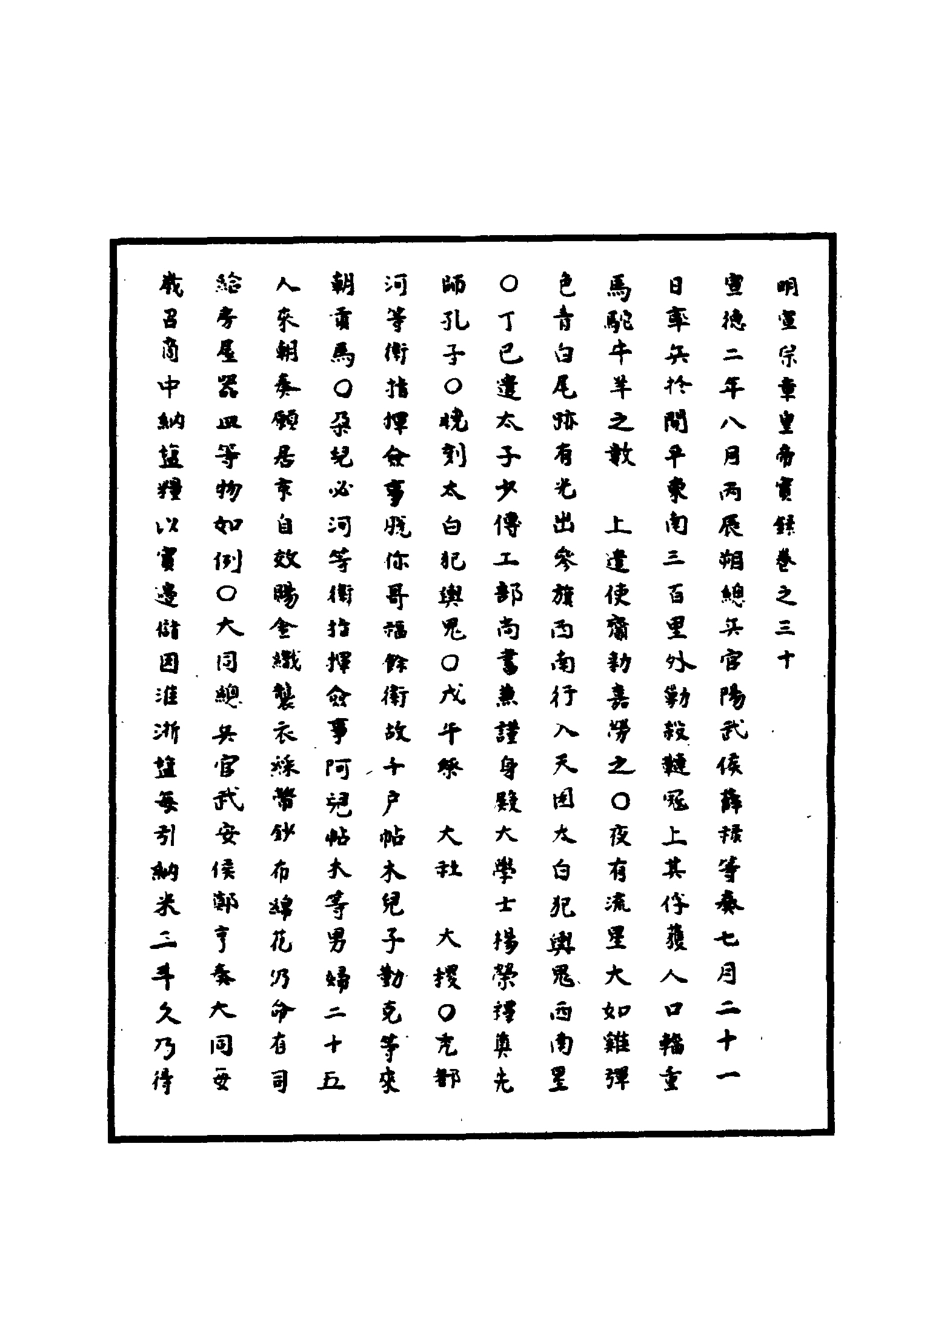 明宣宗章皇帝實錄卷之三十
宣德二年八月丙辰朔總兵官陽武侯薛祿等奏七月二十一
日率兵於開平東南三百里外勦殺韃寇上其俘獲人口輜重
馬駝牛羊之數　上遣使齎勑嘉勞之○夜有流星大如雞彈
色青白尾跡有光出參旗西南行入天囷太白犯輿鬼西南星
○丁巳遣太子少傅工部尚書兼謹身殿大學士楊榮釋奠先
師孔子○曉刻太白犯輿鬼○戊午祭　大社　大稷○兀都
河等衛指揮僉事脫你哥福餘衛故千戶帖木兒子勤克等來
朝貢馬○朶兒必河等衛指揮僉事阿兒帖木等男婦二十五
人來朝奏願居京自效賜金織襲衣綵幣鈔布綿花仍命有司
給房屋器皿等物如例○大同總兵官武安侯鄭亨奏大同每
歲召商中納鹽糧以實邊儲因淮浙鹽每引納米三斗久乃得